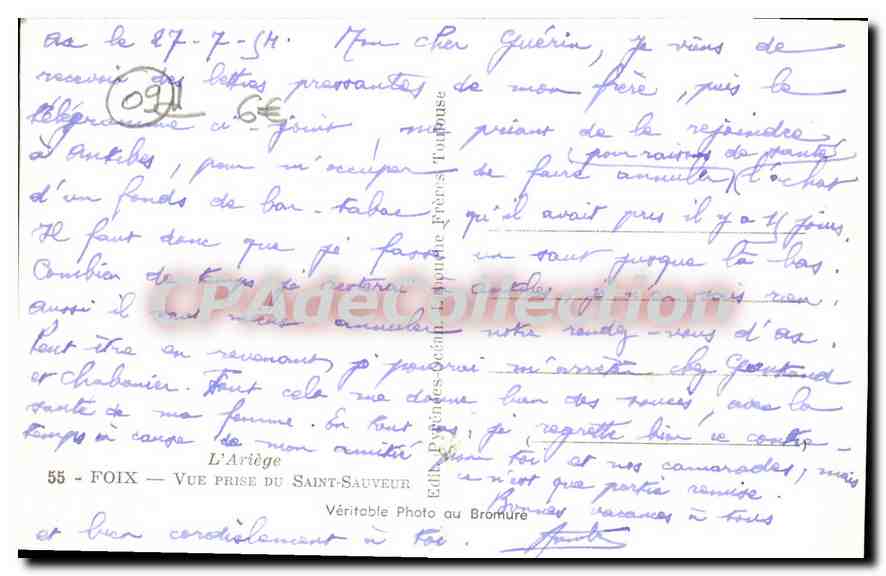 Ax le 27-7-54. Mon cher Guérin, je viens de
recevoir des lettres pressantes de mon frère, puis le
télégramme ci-joint, me priant de le rejoindre
(pour raisons de santé)
à Antibes, pour m'occuper de faire annuler l'achat
d'un fonds de bar-tabac qu'il avait pris il y a 15 jours.
Il faut donc que je fasse un saut jusque là bas.
Combien de temps je resterai à Antibes, je n'en sais rien,
aussi il annuler notre rendez-vous d'Ax.
Peut être en revenant, je pourrai m'arrêter chez
et Chabanier. Tout cela me donne bien des soucis, avec la
santé de ma femme. En tout cas, je regrette bien ce contre-
temps à cause de mon amitié pour toi et nos camarades, mais
ce n'est que partie remise.
Bonnes vacances à tous
et bien cordialement à toi.
09
6€
L'Ariège
55 - FOIX — VUE PRISE DU SAINT-SAUVEUR
Véritable Photo au Bromure
Edit. Pyrénées-Océan, Labouche Frères Toulouse
CPAdeCollection